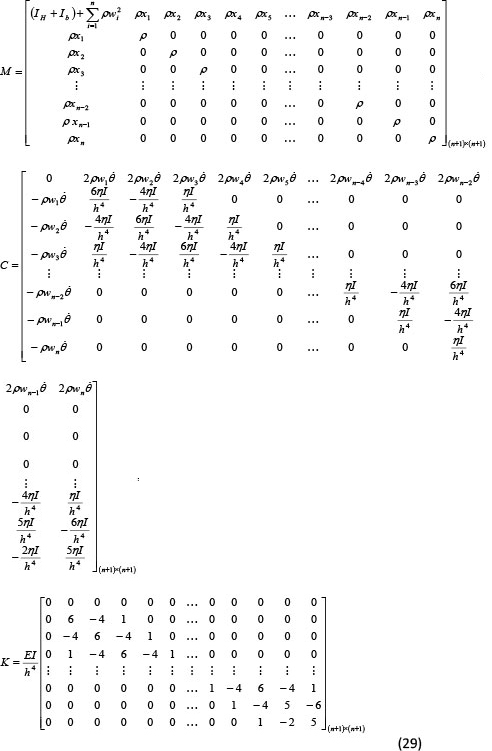 M = [ (I_H + I_b) + \sum_{i=1}^{n} ρw_i^2 ρx_1 ρx_2 ρx_3 ρx_4 ρx_5 … ρx_{n-3} ρx_{n-2} ρx_{n-1} ρx_n
ρx_1 ρ 0 0 0 0 … 0 0 0 0
ρx_2 0 ρ 0 0 0 … 0 0 0 0
ρx_3 0 0 ρ 0 0 … 0 0 0 0
⋮ ⋮ ⋮ ⋮ ⋮ ⋮ … ⋮ ⋮ ⋮ ⋮
ρx_{n-2} 0 0 0 0 0 … 0 ρ 0 0
ρx_{n-1} 0 0 0 0 0 … 0 0 ρ 0
ρx_n 0 0 0 0 0 … 0 0 0 ρ ]_{(n+1)×(n+1)}
C = [ 0 2ρw_1θ̇ 2ρw_2θ̇ 2ρw_3θ̇ 2ρw_4θ̇ 2ρw_5θ̇ … 2ρw_{n-4}θ̇ 2ρw_{n-3}θ̇ 2ρw_{n-2}θ̇
-ρw_1θ̇ 6ηI/h^4 -4ηI/h^4 ηI/h^4 0 0 … 0 0 0
-ρw_2θ̇ -4ηI/h^4 6ηI/h^4 -4ηI/h^4 ηI/h^4 0 … 0 0 0
-ρw_3θ̇ ηI/h^4 -4ηI/h^4 6ηI/h^4 -4ηI/h^4 ηI/h^4 … 0 0 0
⋮ ⋮ ⋮ ⋮ ⋮ ⋮ … ⋮ ⋮ ⋮
-ρw_{n-2}θ̇ 0 0 0 0 0 … ηI/h^4 -4ηI/h^4 6ηI/h^4
-ρw_{n-1}θ̇ 0 0 0 0 0 … 0 ηI/h^4 -4ηI/h^4
-ρw_nθ̇ 0 0 0 0 0 … 0 0 ηI/h^4
2ρw_{n-1}θ̇ 2ρw_nθ̇
0 0
0 0
0 0
⋮ ⋮
-4ηI/h^4 ηI/h^4
5ηI/h^4 -6ηI/h^4
-2ηI/h^4 5ηI/h^4 ]_{(n+1)×(n+1)} ;
K = EI/h^4 [ 0 0 0 0 0 0 … 0 0 0 0 0
0 6 -4 1 0 0 … 0 0 0 0 0
0 -4 6 -4 1 0 … 0 0 0 0 0
0 1 -4 6 -4 1 … 0 0 0 0 0
⋮ ⋮ ⋮ ⋮ ⋮ ⋮ … ⋮ ⋮ ⋮ ⋮ ⋮
0 0 0 0 0 0 … 1 -4 6 -4 1
0 0 0 0 0 0 … 0 1 -4 5 -6
0 0 0 0 0 0 … 0 0 1 -2 5 ]_{(n+1)×(n+1)}
(29)